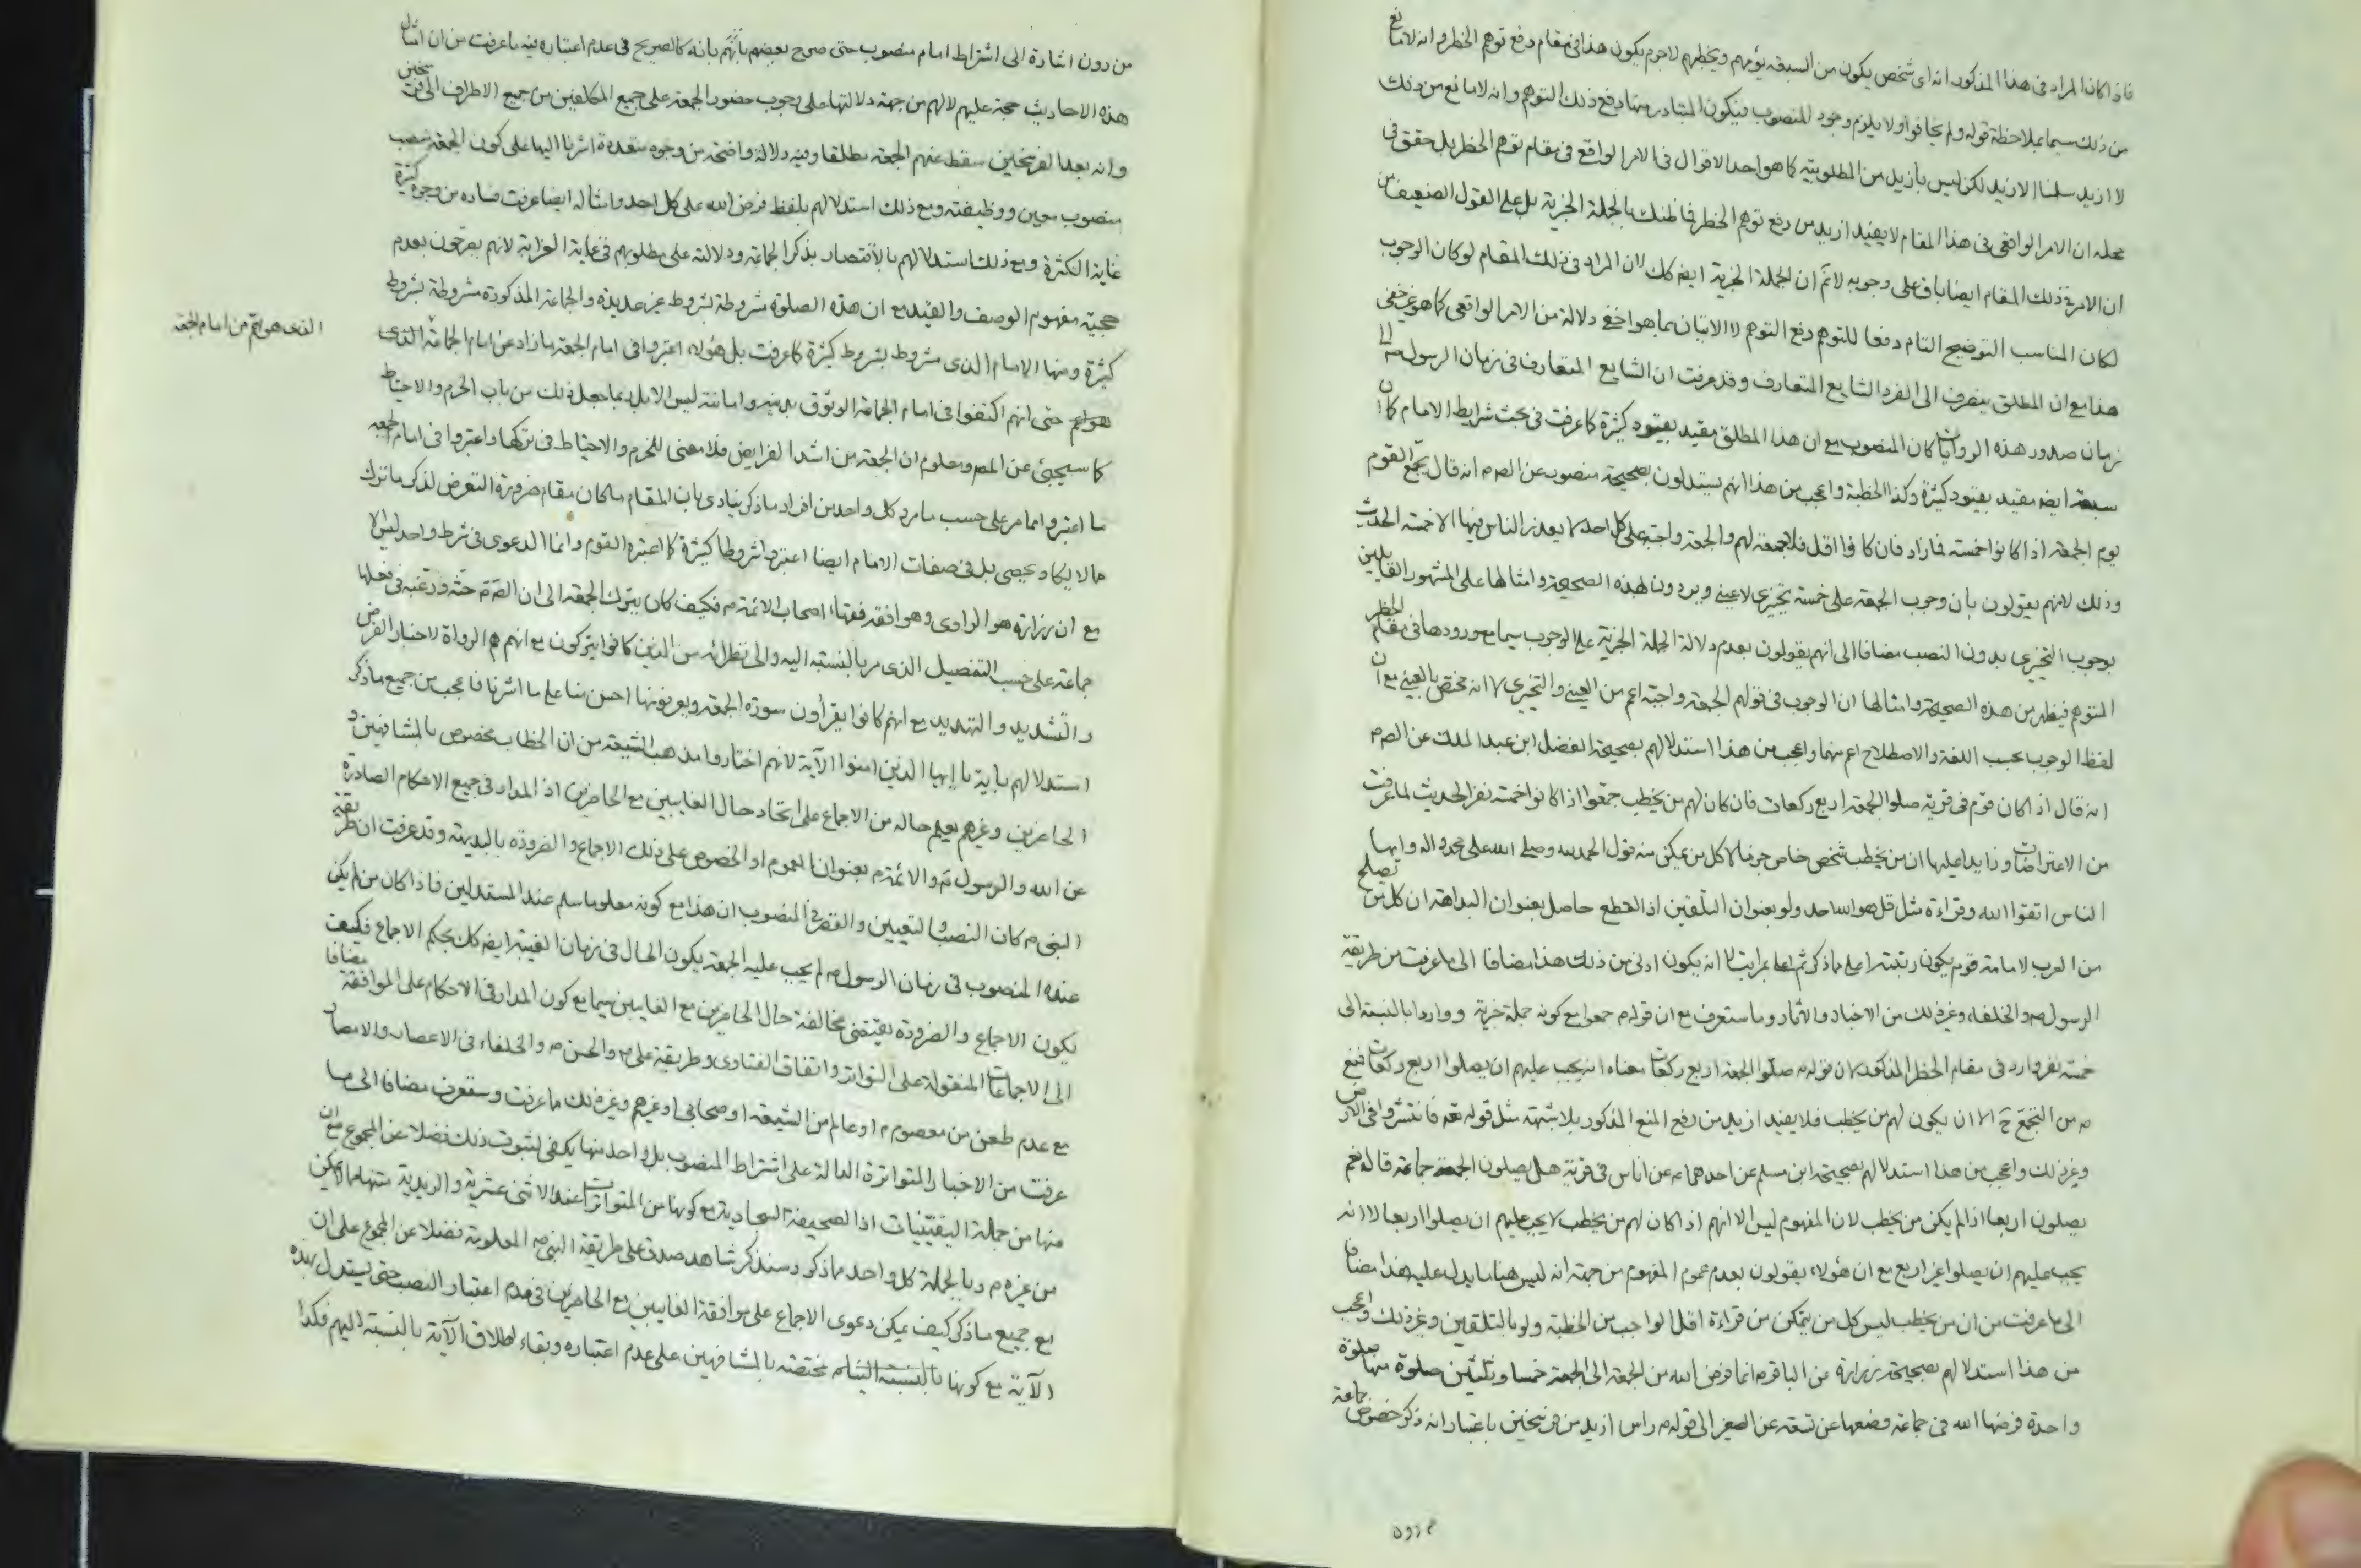 فاذا كان المراد فى هذا المذكور انه اى شخص يكون من السبعة يؤمهم ويخطبهم لاجرم يكون هذا فى مقام دفع توهم الخطر وانه لا مانع
من ذلك سيما بملاحظة قوله ولم يخافوا ولا يلزم وجود المنصوب فيكون المتبادر منها دفع ذلك التوهم وانه لا مانع من ذلك
لا ازيد سلمنا الازيد لكن ليس بازيد من المطلوبية كما هو احد الاقوال فى الامر الواقع فى مقام توهم الحظر بل حقق فى
محله ان الامر الواقع فى هذا المقام لا يفيد ازيد من رفع توهم الحظر فما ظنك بالجملة الخبرية بل على القول الضعيف من
ان الامر فى ذلك المقام ايضا باق على وجوبه لا نم ان الجملة الخبرية ايضا كك لان المراد فى ذلك المقام لو كان الوجوب
لكان المناسب التوضيح التام دفعا للتوهم دفع التوهم لا الاتيان بما هو اخفى دلالة من الامر الواقعى كما هو غير خفى
هذا مع ان المطلق ينصرف الى الفرد الشايع المتعارف وقد عرفت ان الشايع المتعارف فى زمان الرسول ص الى
زمان صدور هذه الروايات كان المنصوب مع ان هذا المطلق مقيد بقيود كثيرة كما عرفت فى بحث شرايط الامام كما ان
سبعة ايضا مقيد بقيود كثيرة وكذا الخطبة واعجب من هذا انهم يستدلون بصحيحة منصور عن الص م انه قال يجمع القوم
يوم الجمعة اذا كانوا خمسة فما زاد فان كانوا اقل فلا جمعة لهم والجمعة واجبة على كل احد لا يعذر الناس فيها الا خمسة الحديث
وذلك لانهم يقولون بأن وجوب الجمعة على خمسة تخييرى لا عينى ويردون لهذه الصحيحة وامثالها على المشهور القايلين
بوجوب التخييرى بدون النصب مضافا الى انهم يقولون بعدم دلالة الجملة الخبرية على الوجوب سيما مع ورودها فى مقام الحظر
المتوهم فيظهر من هذه الصحيحة وامثالها ان الوجوب فى قولهم الجمعة واجبة اعم من العينى والتخييرى لا انه مختص بالعينى مع ان
لفظ الوجوب بحسب اللغة والاصطلاح اعم منهما واعجب من هذا استدلالهم بصحيحة الفضل ابن عبد الملك عن الص م
انه قال اذا كان قوم فى قرية صلوا الجمعة اربع ركعات فان كان لهم من يخطب جمعوا اذا كانوا خمسة نفر الحديث لما عرفت
من الاعتراضات وزايدا عليها ان من يخطب شخص خاص جزما لا كل من يمكن منه قول الحمد لله وصلى الله على محمد واله وايها
الناس اتقوا الله وقراءة مثل قل هو الله احد ولو بعنوان التلقين اذ القطع حاصل بعنوان البداهة ان كل من يصلح
من العرب لامامة قوم يكون رتبته اعلى مما ذكر ثم اعلى بمراتب لا انه يكون ادنى من ذلك هذا مضافا الى ما عرفت من طريقة
الرسول ص والخلفاء وغير ذلك من الاخبار والاثار وما ستعرف مع ان قوله م جمعوا مع كونه جملة خبرية وواردا بالنسبة الى
خمسة نفر وارد فى مقام الحظر المذكور لان قوله م صلوا الجمعة اربع ركعات معناه انه يجب عليهم ان يصلوا اربع ركعات فمنع
م من التجمع ح الا ان يكون لهم من يخطب فلا يفيد ازيد من رفع المنع المذكور بلا شبهة مثل قوله تعه فانتشروا فى الارض
وغير ذلك واعجب من هذا استدلالهم بصحيحة ابن مسلم عن احدهما م عن اناس فى قرية هل يصلون الجمعة جماعة قال نعم
يصلون اربعا اذا لم يكن من يخطب لان المفهوم ليس الا انهم اذا كان لهم من يخطب لا يجب عليهم ان يصلوا اربعا لا انه
يجب عليهم ان يصلوا غير اربع مع ان هؤلاء يقولون بعدم عموم المفهوم من جهة انه ليس هنا ما يدل عليه هذا مضافا
الى ما عرفت من ان من يخطب ليس كل من يتمكن من قراءة اقل الواجب من الخطبة ولو بالتلقين وغير ذلك واعجب
من هذا استدلالهم بصحيحة زرارة عن الباقر م انما فرض الله من الجمعة الى الجمعة خمسا وثلثين صلوة منها صلوة
واحدة فرضها الله فى جماعة وضعها عن تسعة عن الصغير الى قوله م راس ازيد من فرسخين باعتبار انه ذكر خصوص جماعة
من دون
من دون اشارة الى اشتراط امام منصوب حتى صرح بعضهم بانه كالصريح فى عدم اعتباره فيه ما عرفت من ان امثال
هذه الاحاديث حجة عليهم لا لهم من جهة دلالتها على وجوب حضور الجمعة على جميع المكلفين من جميع الاطراف الى فرسخين
وانه بعد الفرسخين سقط عنهم الجمعة مطلقا وفيه دلالة واضحة من وجوه متعددة اشرنا اليها على كون الجمعة منصب
منصوب معين ووظيفته ومع ذلك استدلالهم بلفظ فرض الله على كل احد وامثاله ايضا عرفت فساده من وجوه كثيرة
غاية الكثرة ومع ذلك استدلالهم بالاقتصار بذكر الجماعة ودلالته على مطلوبهم فى غاية الغرابة لانهم يصرحون بعدم
حجية مفهوم الوصف والقيد مع ان هذه الصلوة مشروطة بشروط غير عديدة والجماعة المذكورة مشروطة بشروط
كثيرة ومنها الامام الذى مشروط بشروط كثيرة كما عرفت بل هؤلاء اعتبروا فى امام الجمعة ما زاد عن امام الجماعة الذى
الذى هو اهم من امام الجمعة
حتى انهم اكتفوا فى امام الجماعة الوثوق بدينه وامانته ليس الا بل ربما جعل ذلك من باب الحزم والاحتياط
كما سيجيئ عن المصر ومعلوم ان الجمعة من اشد الفرايض فلا معنى للحزم والاحتياط فى تركها واعتبروا فى امام الجمعة
ما اعتبروا مما مر على حسب ما مر وكل واحد من افراد ما ذكر ينادى بان المقام ما كان مقام ضرورة التعرض لذكر ما ترك
مما لا يكاد يحصى بل فى صفات الامام ايضا اعتبروا شروطا كثيرة كما اعتبره القوم وانما الدعوى فى شرط واحد ليس الا
مع ان زرارة هو الراوى وهو افقه فقهاء اصحاب الائمة م فكيف كان يترك الجمعة الى ان الص م حثه ورغبه فى فعلها
جماعة على حسب التفصيل الذى مر بالنسبة اليه والى نظرائه من الذين كانوا يتركون مع انهم هم الرواة لاخبار الفرض
والتشديد والتهديد مع انهم كانوا يقرأون سورة الجمعة ويعرفونها احسن منا على ما اشرنا فاعجب من جميع ما ذكر
استدلالهم باية يا ايها الذين امنوا الآية لانهم اختاروا مذهب الشيعة من ان الخطاب مخصوص بالمشافهين و
الحاضرين وغيرهم يعلم حاله من الاجماع على اتحاد حال الغايبين مع الحاضرين اذ المدار فى جميع الاحكام الصادرة
عن الله والرسول ص والائمة م بعنوان العموم او الخصوص على ذلك الاجماع والضرورة بالبديهة وقد عرفت ان طريقة
النبى م كان النصب والتعيين والقصر فى المنصوب ان هذا مع كونه معلوما مسلم عند المستدلين فاذا كان من لم يكن
عنده المنصوب فى زمان الرسول ص لم يجب عليه الجمعة يكون الحال فى زمان الغيبة ايضا كك بحكم الاجماع فكيف
يكون الاجماع والضرورة يقتضى مخالفة حال الحاضرين مع الغايبين سيما مع كون المدار فى الاحكام على الموافقة مضافا
الى الاجماعات المنقولة على التواتر واتفاق الفتاوى وطريقة على م والحسن م والخلفاء فى الاعصار والامصار
مع عدم طعن من معصوم م او عالم من الشيعة او صحابى او غيرهم وغير ذلك ما عرفت وستعرف مضافا الى ما
عرفت من الاخبار المتواترة الدالة على اشتراط المنصوب بل واحد منها يكفى لثبوت ذلك فضلا عن المجموع مع ان
منها من جملة اليقينيات اذ الصحيفة السجادية مع كونها من المتواترات عند الاثنى عشرية والزيدية متنها مما لا يمكن
من غيره م وبالجملة كل واحد مما ذكر وسنذكر شاهد صدق على طريقة النبى ص المعلومة فضلا عن المجموع على ان
مع جميع ما ذكر كيف يمكن دعوى الاجماع على موافقة الغايبين مع الحاضرين فى عدم اعتبار النصب حتى يستدل بهذه
الآية مع كونها مختصة بالمشافهين على عدم اعتباره وبقاء اطلاق الآية بالنسبة اليهم فكذا